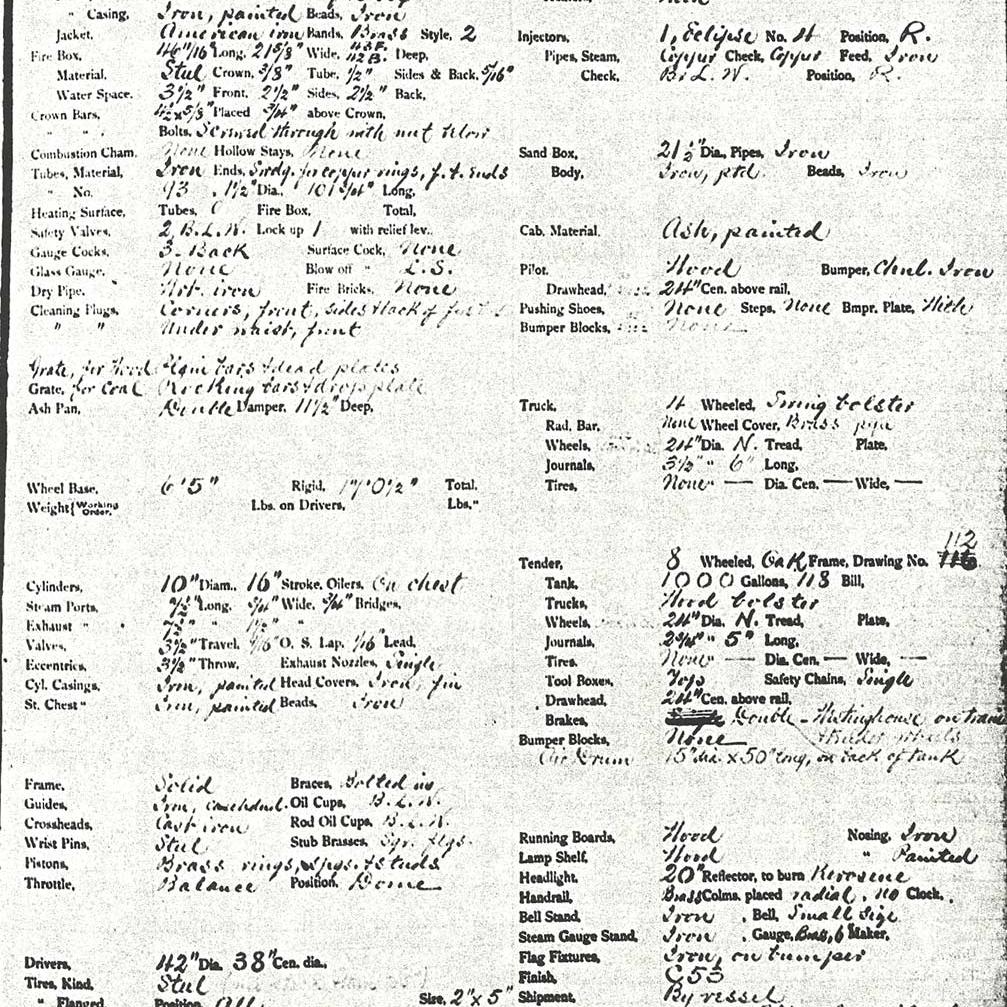 " Casing, Iron, painted Beads, Iron
Jacket, American iron Bands, Brass Style, 2
Fire Box, 46 11/16" Long, 21 5/8" Wide, 43 F. 42 B. Deep,
Material, Steel Crown, 3/8" Tube, 1/2" Sides & Back, 5/16"
Water Space, 3 1/2" Front, 2 1/2" Sides, 2 1/2" Back,
Crown Bars, 4 1/2 x 5/8" Placed 3/4" above Crown,
" " Bolts, Screwed through with nut below
Combustion Cham. None Hollow Stays, None
Tubes, Material, Iron Ends, Swdg. for copper rings, f. A. Ends
" No. 93 , 1 1/2" Dia., 101 3/4" Long,
Heating Surface, Tubes, Fire Box, Total,
Safety Valves, 2, B.L.W. Lock up 1 with relief lev.,
Gauge Cocks, 3. Back Surface Cock, None
Glass Gauge, None Blow off " L.S.
Dry Pipe, Wrt. iron Fire Bricks, None
Cleaning Plugs, Corners, front, sides & back of
" " Under waist, front
Grate, for Wood Plain bars & dead plates
Grate, for Coal Rocking bars & drop plate
Ash Pan, Double Damper, 11 1/2" Deep,
Wheel Base, 6' 5" Rigid, 17' 0 1/2" Total,
Weight { Working Order, Lbs. on Drivers, Lbs."
Cylinders, 10" Diam., 16" Stroke, Oilers, On chest
Steam Ports, 7 1/2" Long, 3/4" Wide, 3/4" Bridges,
Exhaust " 7 1/2" " 1 1/2" "
Valves, 3 1/2" Travel, 7/16" O. S. Lap, 1/16" Lead,
Eccentrics, 3 1/2" Throw, Exhaust Nozzles, Single
Cyl. Casings, Iron, painted Head Covers, Iron, fin
St. Chest " Iron, painted Beads, Iron
Frame, Solid Braces, Bolted in
Guides, Iron, casehdnd. Oil Cups, B.L.W.
Crossheads, Cast iron Rod Oil Cups, B.L.W.
Wrist Pins, Steel Stub Brasses, Sqr. flgs.
Pistons, Brass rings, spgs. & studs
Throttle, Balance Position, Dome
Drivers, 42" Dia. 38" Cen. dia.,
Tires, Kind, Steel
" Flanged Position, All Size, 2" x 5"
Injectors, 1, Eclipse No. 4 Position, R.
Pipes, Steam, Copper Check, Copper Feed, Iron
Check, B.L.W. Position, R.
Sand Box, 21 1/2" Dia., Pipes, Iron
Body, Iron, ptd. Beads, Iron
Cab, Material, Ash, painted
Pilot, Wood Bumper, Chnl. Iron
Drawhead, 24" Cen. above rail,
Pushing Shoes, None Steps, None Bmpr. Plate, With
Bumper Blocks, None
Truck, 4 Wheeled, Swing bolster
Rad. Bar, None Wheel Cover, Brass
Wheels, 24" Dia. N. Tread, Plate,
Journals, 3 1/2" " 6" Long,
Tires, None — Dia. Cen. — Wide, —
112
Tender, 8 Wheeled, Oak Frame, Drawing No.
Tank, 1000 Gallons, 118 Bill,
Trucks, Wood bolster
Wheels, 24" Dia. N. Tread, Plate,
Journals, 2 3/4" " 5" Long,
Tires, None — Dia. Cen. — Wide, —
Tool Boxes, Tops Safety Chains, Single
Drawhead, 24" Cen. above rail,
Brakes, Double - Westinghouse on
Bumper Blocks, None & tender wheels
Air Drum 15" dia. x 50" long, on back of tank
Running Boards, Wood Nosing, Iron
Lamp Shelf, Wood " Painted
Headlight, 20" Reflector, to burn Kerosene
Handrail, Brass Colms. placed radial, no Clock,
Bell Stand, Iron , Bell, Small Size
Steam Gauge Stand, Iron , Gauge, Brass, 6 Maker,
Flag Fixtures, Iron, on bumper
Finish, C 53
Shipment, By vessel